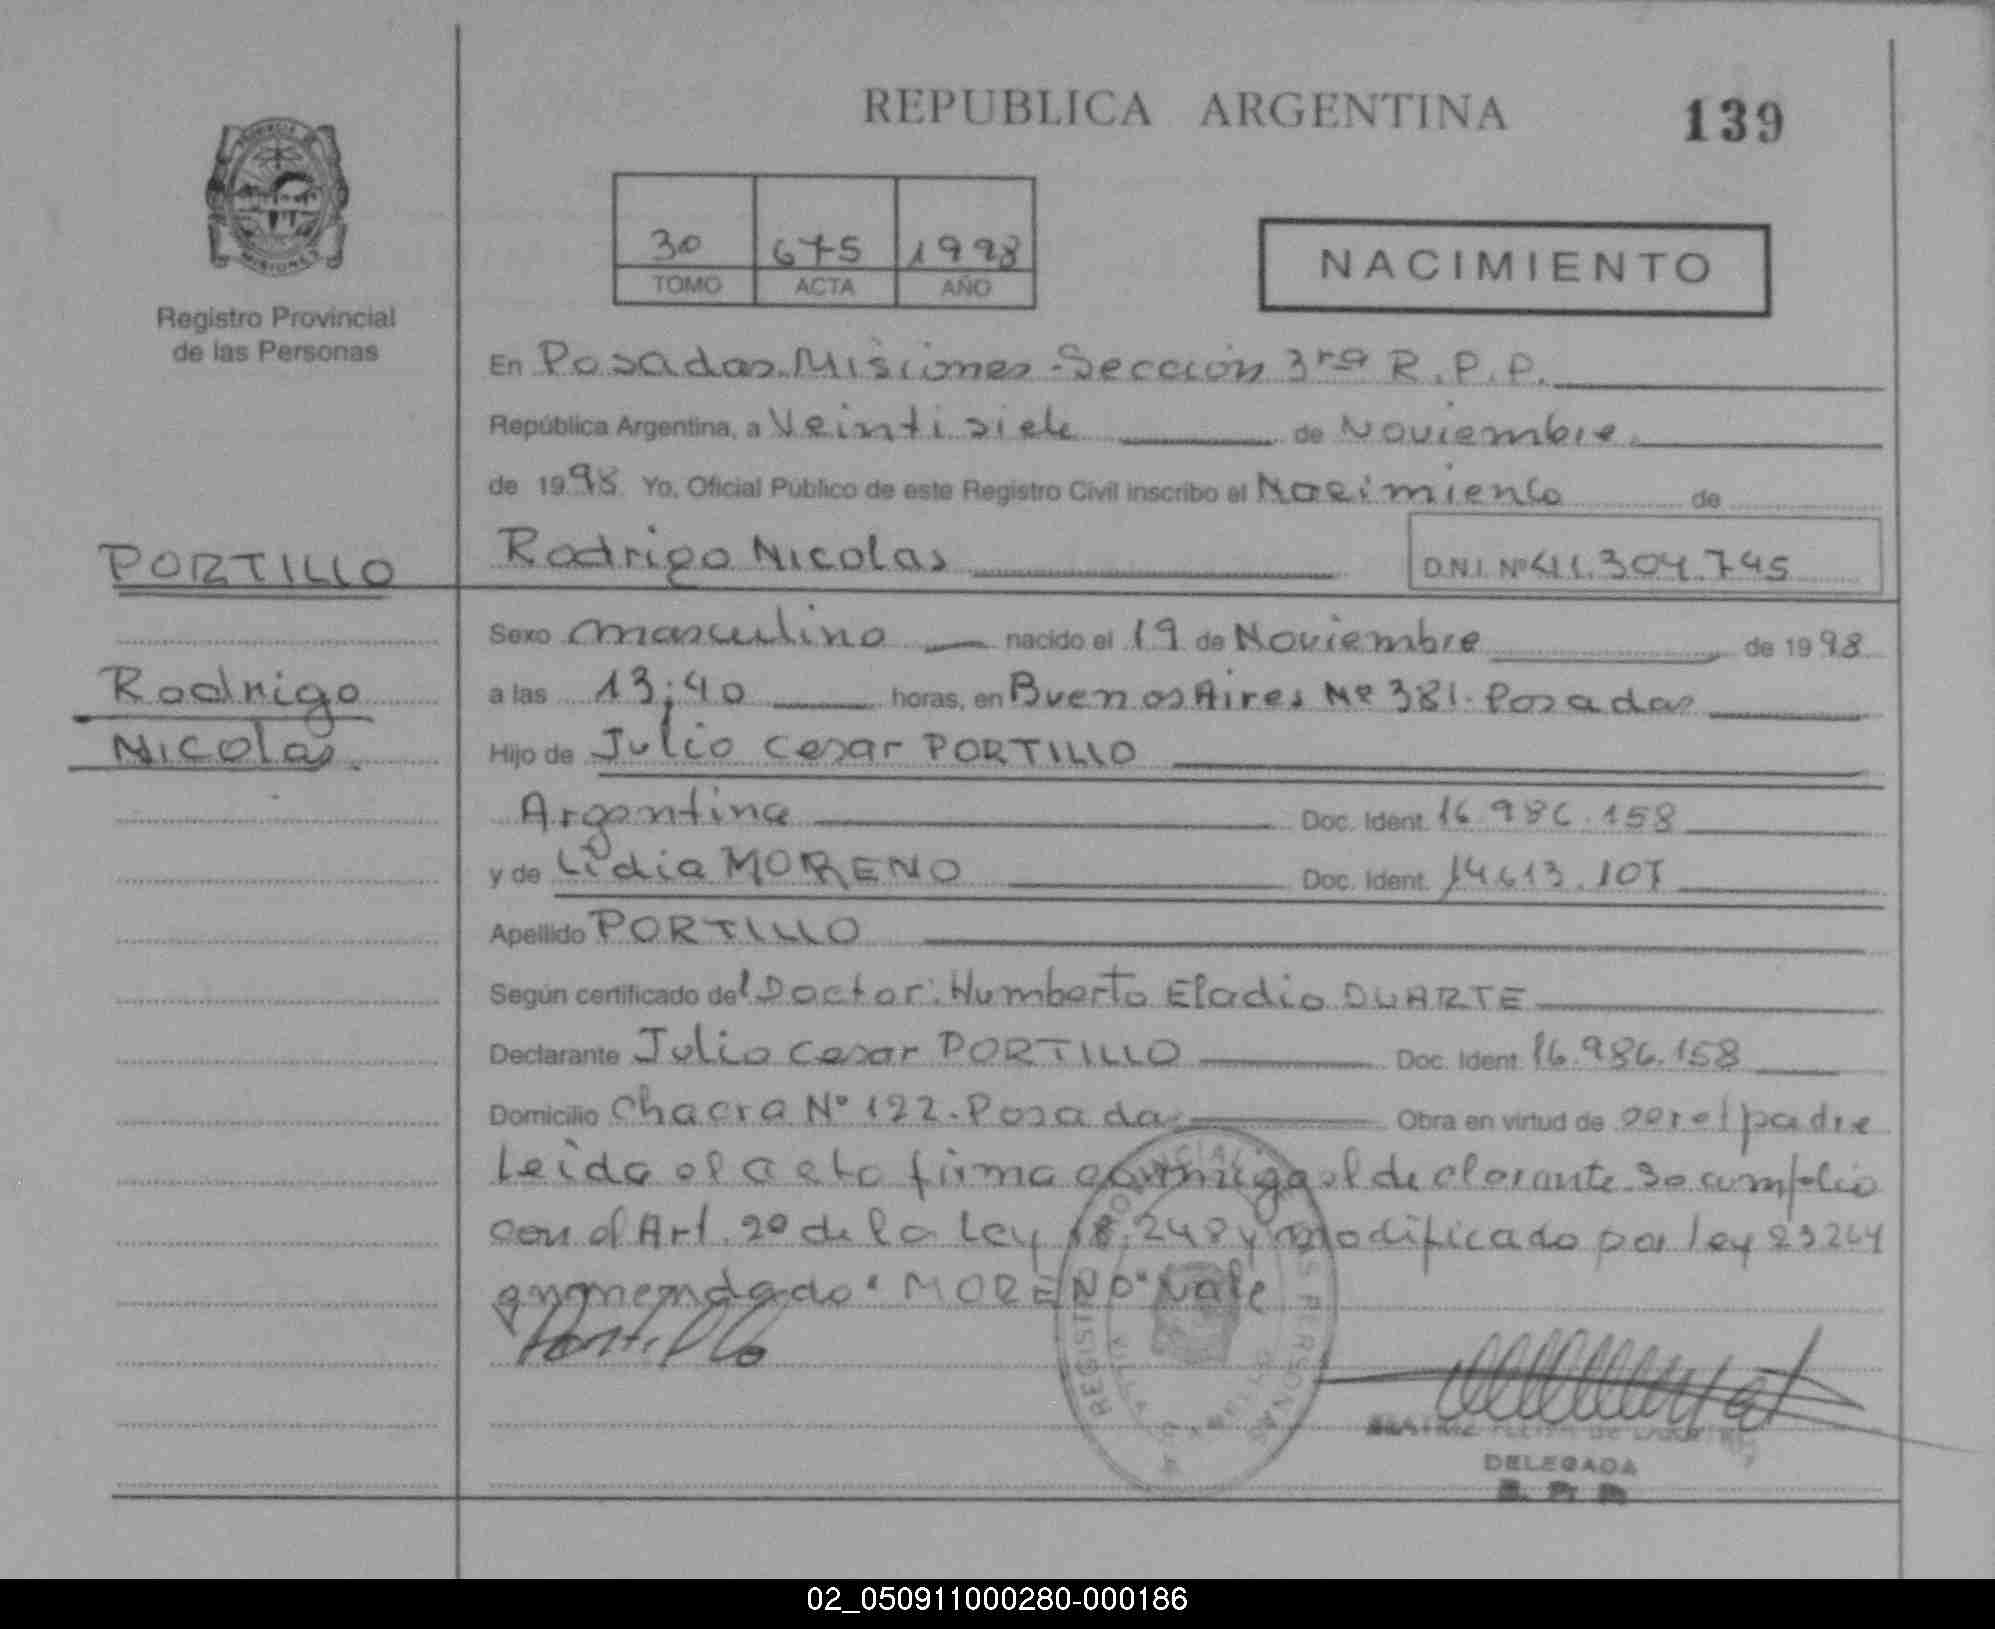 REPUBLICA ARGENTINA
139
30 675 1998
TOMO ACTA AÑO
NACIMIENTO
MISIONES
Registro Provincial
de las Personas
En Posadas. Misiones - Sección 3ra R.P.P.
República Argentina, a Veintisiete de Noviembre.
de 1998 Yo, Oficial Público de este Registro Civil inscribo el Nacimiento de
PORTILLO
Rodrigo Nicolas
D.N.I. Nº 41.304.745
Sexo masculino nacido el 19 de Noviembre de 1998
Rodrigo
a las 13:40 horas, en Buenos Aires Nº 381. Posadas
Nicolas.
Hijo de Julio Cesar PORTILLO
Argentina Doc. Ident. 16.986.158
y de Lidia MORENO Doc. Ident. 14.613.107
Apellido PORTILLO
Según certificado del Doctor: Humberto Eladio DUARTE
Declarante Julio Cesar PORTILLO Doc. Ident. 16.986.158
Domicilio Chacra Nº 122. Posadas Obra en virtud de ser el padre
Leida el acta firma conmigo el declarante. Se cumplio
con el Art. 2º de la Ley 18.248 y modificado por ley 23264
enmendado "MORENO" Vale
Portillo
REGISTRO PROVINCIAL PERSONAS
DELEGADA
02_050911000280-000186